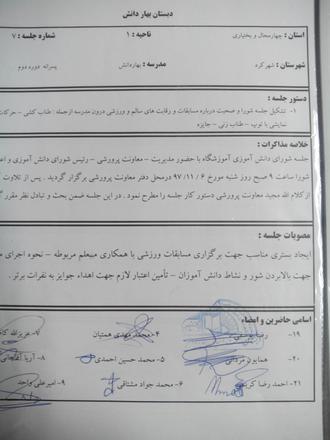 دبستان بهار دانش
استان : چهارمحال و بختیاری ناحیه : ۱ شماره جلسه : ۷
شهرستان : شهرکرد مدرسه : بهاردانش پسرانه دوره دوم
دستور جلسه :
۱- تشکیل جلسه شورا و صحبت درباره مسابقات و رقابت های سالم و ورزشی درون مدرسه ازجمله : طناب کشی – حرکات
نمایشی با توپ – طناب زنی – جایزه
خلاصه مذاکرات :
جلسه شورای دانش آموزی آموزشگاه با حضور مدیریت – معاونت پرورشی – رئیس شورای دانش آموزی و اعضا
شورا ساعت ۹ صبح روز شنبه مورخ ۶ /۱۱/ ۹۷ درمحل دفتر معاونت پرورشی برگزار گردید . پس از تلاوت
از کلام الله مجید معاونت پرورشی دستور کار جلسه را مطرح نمود . در این جلسه ضمن بحث و تبادل نظر مقرر
مصوبات جلسه :
ایجاد بستری مناسب جهت برگزاری مسابقات ورزشی با همکاری معلم مربوطه – نحوه اجرای
جهت بالابردن شور و نشاط دانش آموزان – تأمین اعتبار لازم جهت اهداء جوایز به نفرات برتر .
اسامی حاضرین و امضاء
۱۹- رضا ۴- محمد مهدی همتیان ۷- عزیزالله
۲۰- همایون مردانی ۵- محمد حسین احمدی ۸- آریا
۲۱- احمد رضا ۶- محمد جواد مشتاقی ۹- امیرعلی واحد